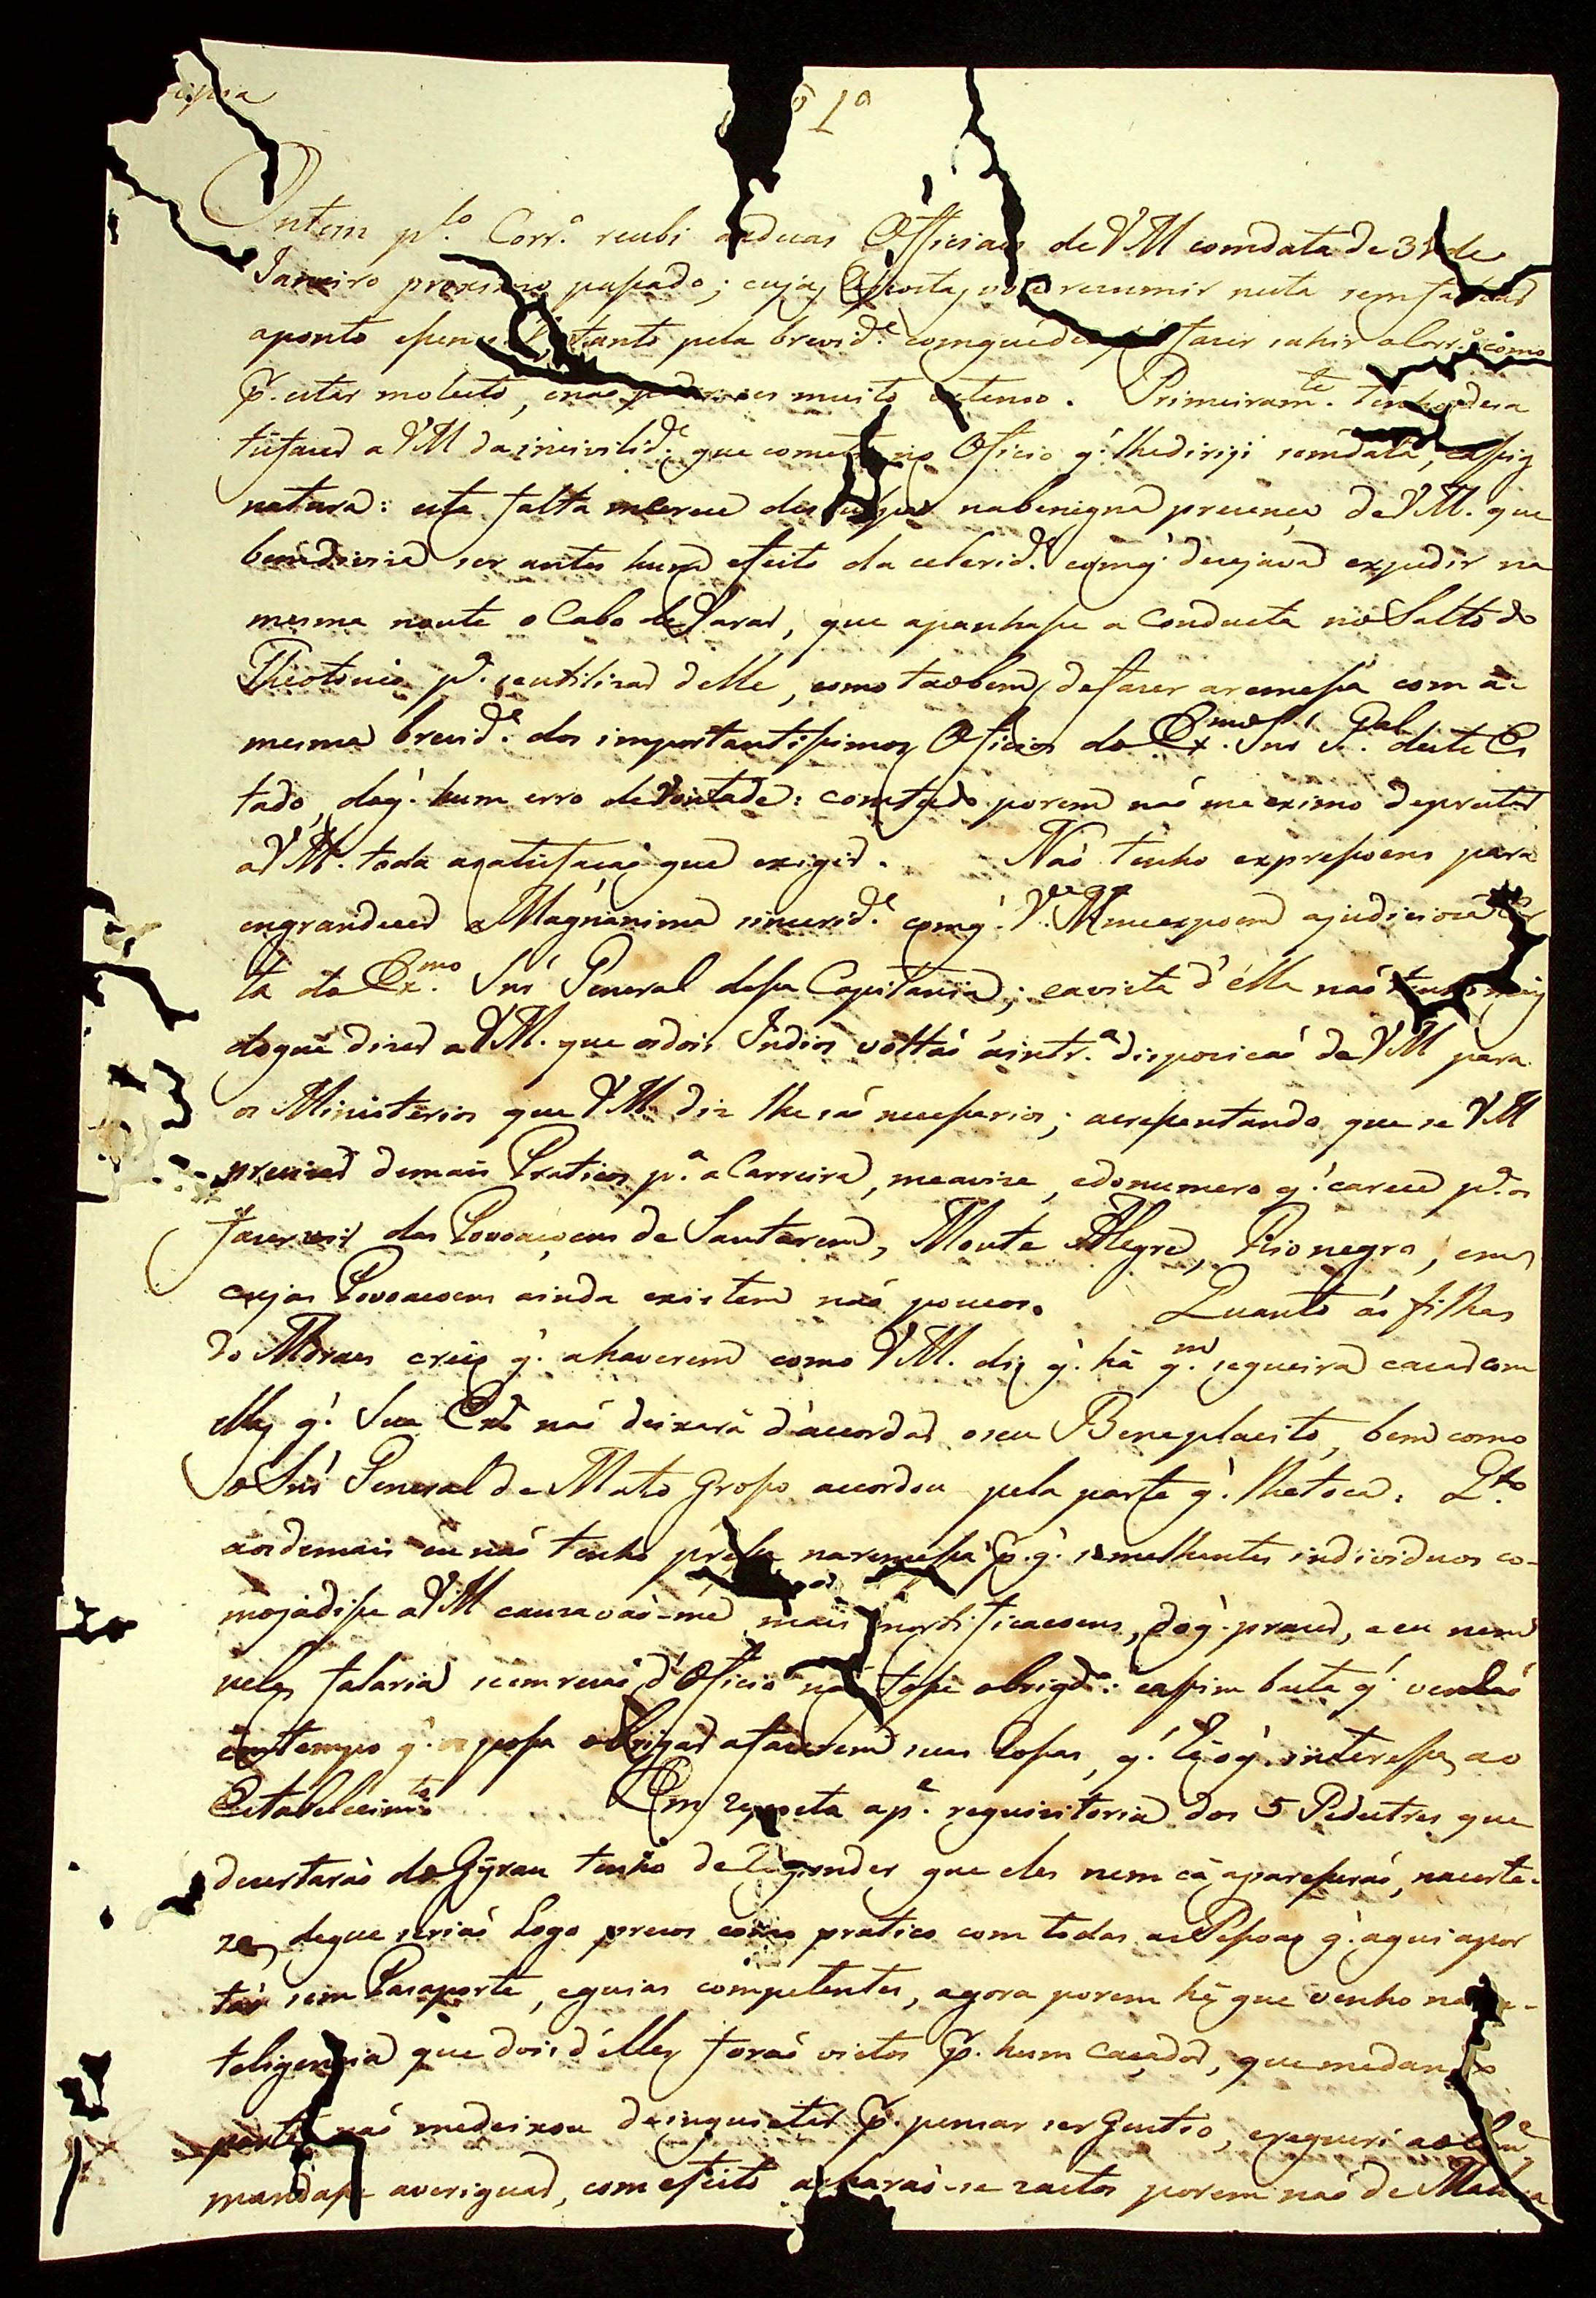 Copia
1ª
Ontem p.lo Corr.º recebi as duas Officiaes de VM comdata de 31 de
Janeiro proximo passado; cujas Resposta vou resumir nesta sem faltar
aponto esencial tanto pela brevid.e comque fazer sahir o Corr.º como
p. estar molesto, e não poder ser muito extenso. Primeiram.te tenho desa
tisfazer a VM da incivilid.e que cometi no Oficio q' lhe dirigi semdata, easig
natura: esta falta merece desculpa nabenigna presença de VM. que
bemdiviria ser antes hum efeito da celerid.e comq' desejava expedir na
mesma noute o Cabo de , que apanhase a Conducta no Salto do
Theotonio p.ª seutilizar delle, como taobem defazer aremessa com a-
mesma brevid.e dos importantissimos Oficios do Ex.mo Snr G.al deste Es
tado, doq' hum erro devontade: comtudo porem naõ me eximo deprestar
aVM. toda asatisfaçaõ que exigir. Naõ tenho expressoens para
engrandecer a Magnanima sincerid.e comq' V.M me expoem ajudicioza Car
ta do Ex.mo Snr General desa Capitania; eavista d'ella naõ tenho mais
doque dizer aVM. que osdois Indios voltaõ áintr.ª disposicaõ de VM para
os Ministerios que VM. diz lhe saõ necessarios; acrescentando que se VM
precisar demais Praticos p.ª a Carreira, meavise, edonumero q' carece p.ª os
fazer vir das Povoaçoens de Santarem, Monte Alegre, Rionegro, em
cujas Povoacoens ainda existem naõ poucos. Quanto ás filhas
do Moraes creio q' ahaverem como VM. diz q' há q.m sequeira cazar com
ellas q' Sua Ex.ª naõ deixará d'acordar oseu Beneplacito, bem como
o Snr General de Mato Groso acordou pela parte q' lhetoca. Q.to
aosdemais eu naõ tenho presa naremessa p. q' semelhantes individuos co-
mojadise aVM cauzavaõ-me mais mortificacoens, doq' prazer, e eu nem
nelles falaria sem rezaõ d'Oficio naõ fose obrigd.º: easim basta q' venhaõ
emtempo q' os posa obrigar afazerem suas Rosas, q' hé oq' interessa ao
Estabelecim.to Em Resposta ap.e requisitoria dos 5 Pedestres que
desertaraõ do Gyrau tenho deResponder que eles nem cá apareseraõ, nacerte-
za dequeseriaõ Logo presos como pratico com todas as Pesoas q' aqui apor
taõ sem Pasaporte, eguias competentes, agora porem hé que venho na in-
teligencia que dois d'elles foraõ vistos p. hum Caçador, que medando
parte naõ medeixou deinquietar p. pensar ser Gentio, erequeri ao Com.e
mandase averiguar, com efeito acharaõ-se rastos porem naõ de